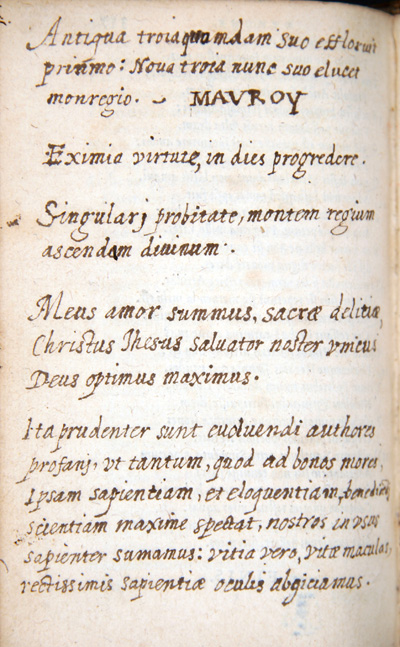 Antiqua troia quondam suo effloruit
primmo: Nova troia nunc suo elucet
monregio. MAVROY
Eximia virtute, in dies progredere.
Singularj probitate, montem regium
ascendam diuinum.
Meus amor summus, sacræ delitiæ,
Christus Jhesus saluator noster vnicus
Deus optimus maximus.
Ita prudenter sunt euoluendi authores
profanj, vt tantum, quod ad bonos mores,
Ipsam sapientiam, et eloquentiam,
scientiam maxime spectat, nostros in vsus
sapienter sumamus: vitia vero, vitæ maculas,
rectissimis sapientiæ oculis abijciamus.